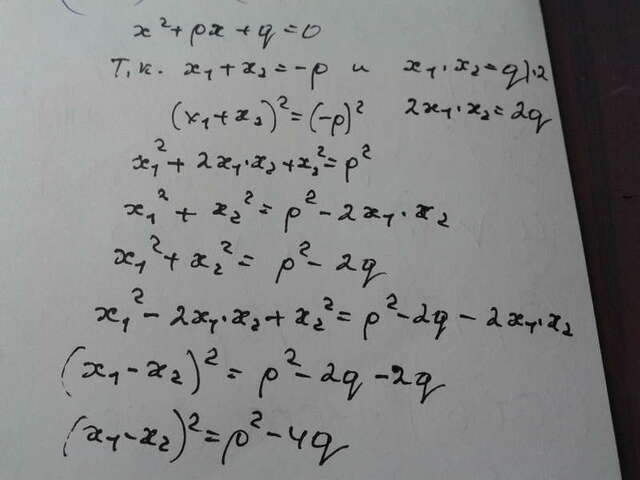 x² + px + q = 0
Т.к. x₁ + x₂ = -p и x₁·x₂ = q |·2
(x₁ + x₂)² = (-p)² 2x₁·x₂ = 2q
x₁² + 2x₁·x₂ + x₂² = p²
x₁² + x₂² = p² - 2x₁·x₂
x₁² + x₂² = p² - 2q
x₁² - 2x₁·x₂ + x₂² = p² - 2q - 2x₁·x₂
(x₁ - x₂)² = p² - 2q - 2q
(x₁ - x₂)² = p² - 4q